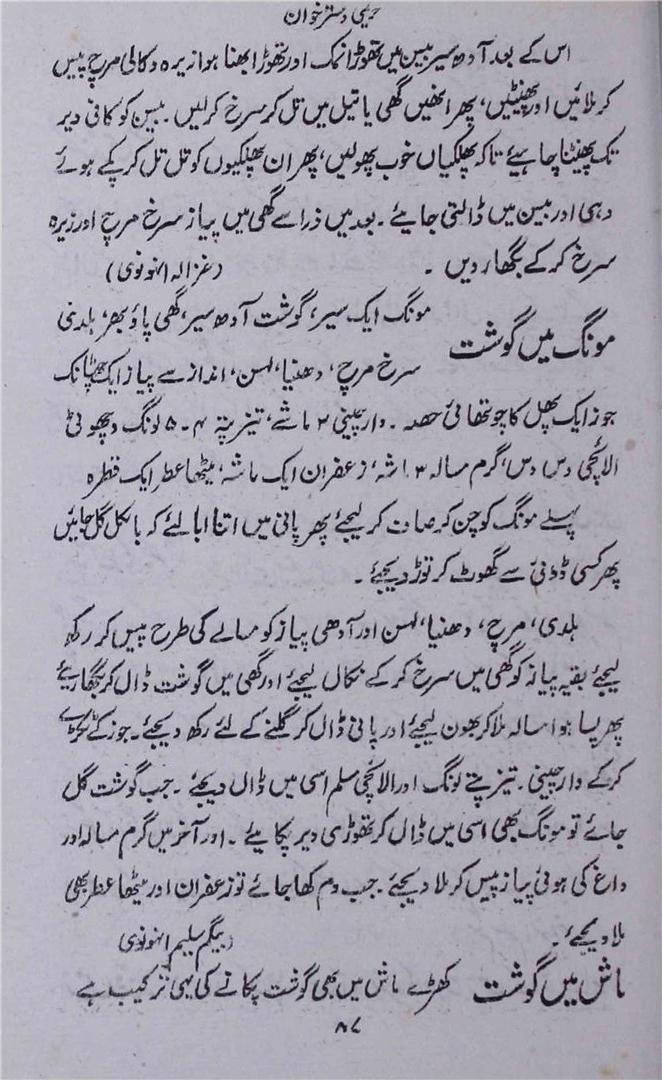 حریمی دسترخوان
اس کے بعد آدھ سیر بیسن میں تھوڑا نمک اور تھوڑا بھنا ہوا زیرہ و کالی مرچ پیس
کر ملائیں اور پھینٹیں، پھر انھیں گھی یا تیل میں تل کر سرخ کر لیں۔ بیسن کو کافی دیر
تک پھینٹنا چاہیئے تاکہ پھلکیاں خوب پھولیں، پھر ان پھلکیوں کو تل تل کر پکے ہوئے
دہی اور بیسن میں ڈالتی جایئے۔ بعد میں ذرا سے گھی میں پیاز سرخ مرچ اور زیرہ
سرخ کر کے بگھار دیں۔ (غزالہ انہونوی)
مونگ میں گوشت مونگ ایک سیر، گوشت آدھ سیر، گھی پاؤ بھر، ہلدی
سرخ مرچ، دھنیا، لہسن، انداز سے پیاز ایک چھٹانک
جوز ایک پھل کا چوتھائی حصہ۔ دار چینی ۳ ماشے، تیز پتہ ۴۔۵ لونگ و چھوٹی
الائچی دس دس، گرم مسالہ ۳ ماشہ، زعفران ایک ماشہ، میٹھا عطر ایک قطرہ
پہلے مونگ کو چن کر صاف کر لیجئے پھر پانی میں اتنا ابالئے کہ بالکل گل جائیں
پھر کسی ڈوئی سے گھوٹ کر توڑ دیجئے۔
ہلدی، مرچ، دھنیا، لہسن اور آدھی پیاز کو مسالے کی طرح پیس کر رکھ
لیجئے بقیہ پیاز کو گھی میں سرخ کر کے نکال لیجئے اور گھی میں گوشت ڈال کر بگھاریئے
پھر پسا ہوا مسالہ ملا کر بھون لیجئے اور پانی ڈال کر گلنے کے لئے رکھ دیجئے۔ جوز کے ٹکڑے
کر کے دار چینی۔ تیز پتے لونگ اور الائچی سلم اسی میں ڈال دیجئے۔ جب گوشت گل
جائے تو مونگ بھی اسی میں ڈال کر تھوڑی دیر پکایئے۔ اور آخر میں گرم مسالہ اور
داغ کی ہوئی پیاز پیس کر ملا دیجئے۔ جب دم کھا جائے تو زعفران اور میٹھا عطر بھی
ملا دیجئے۔ (بیگم سلیم انہونوی)
ماش میں گوشت کھڑے ماش میں بھی گوشت پکانے کی یہی ترکیب ہے
۸۷